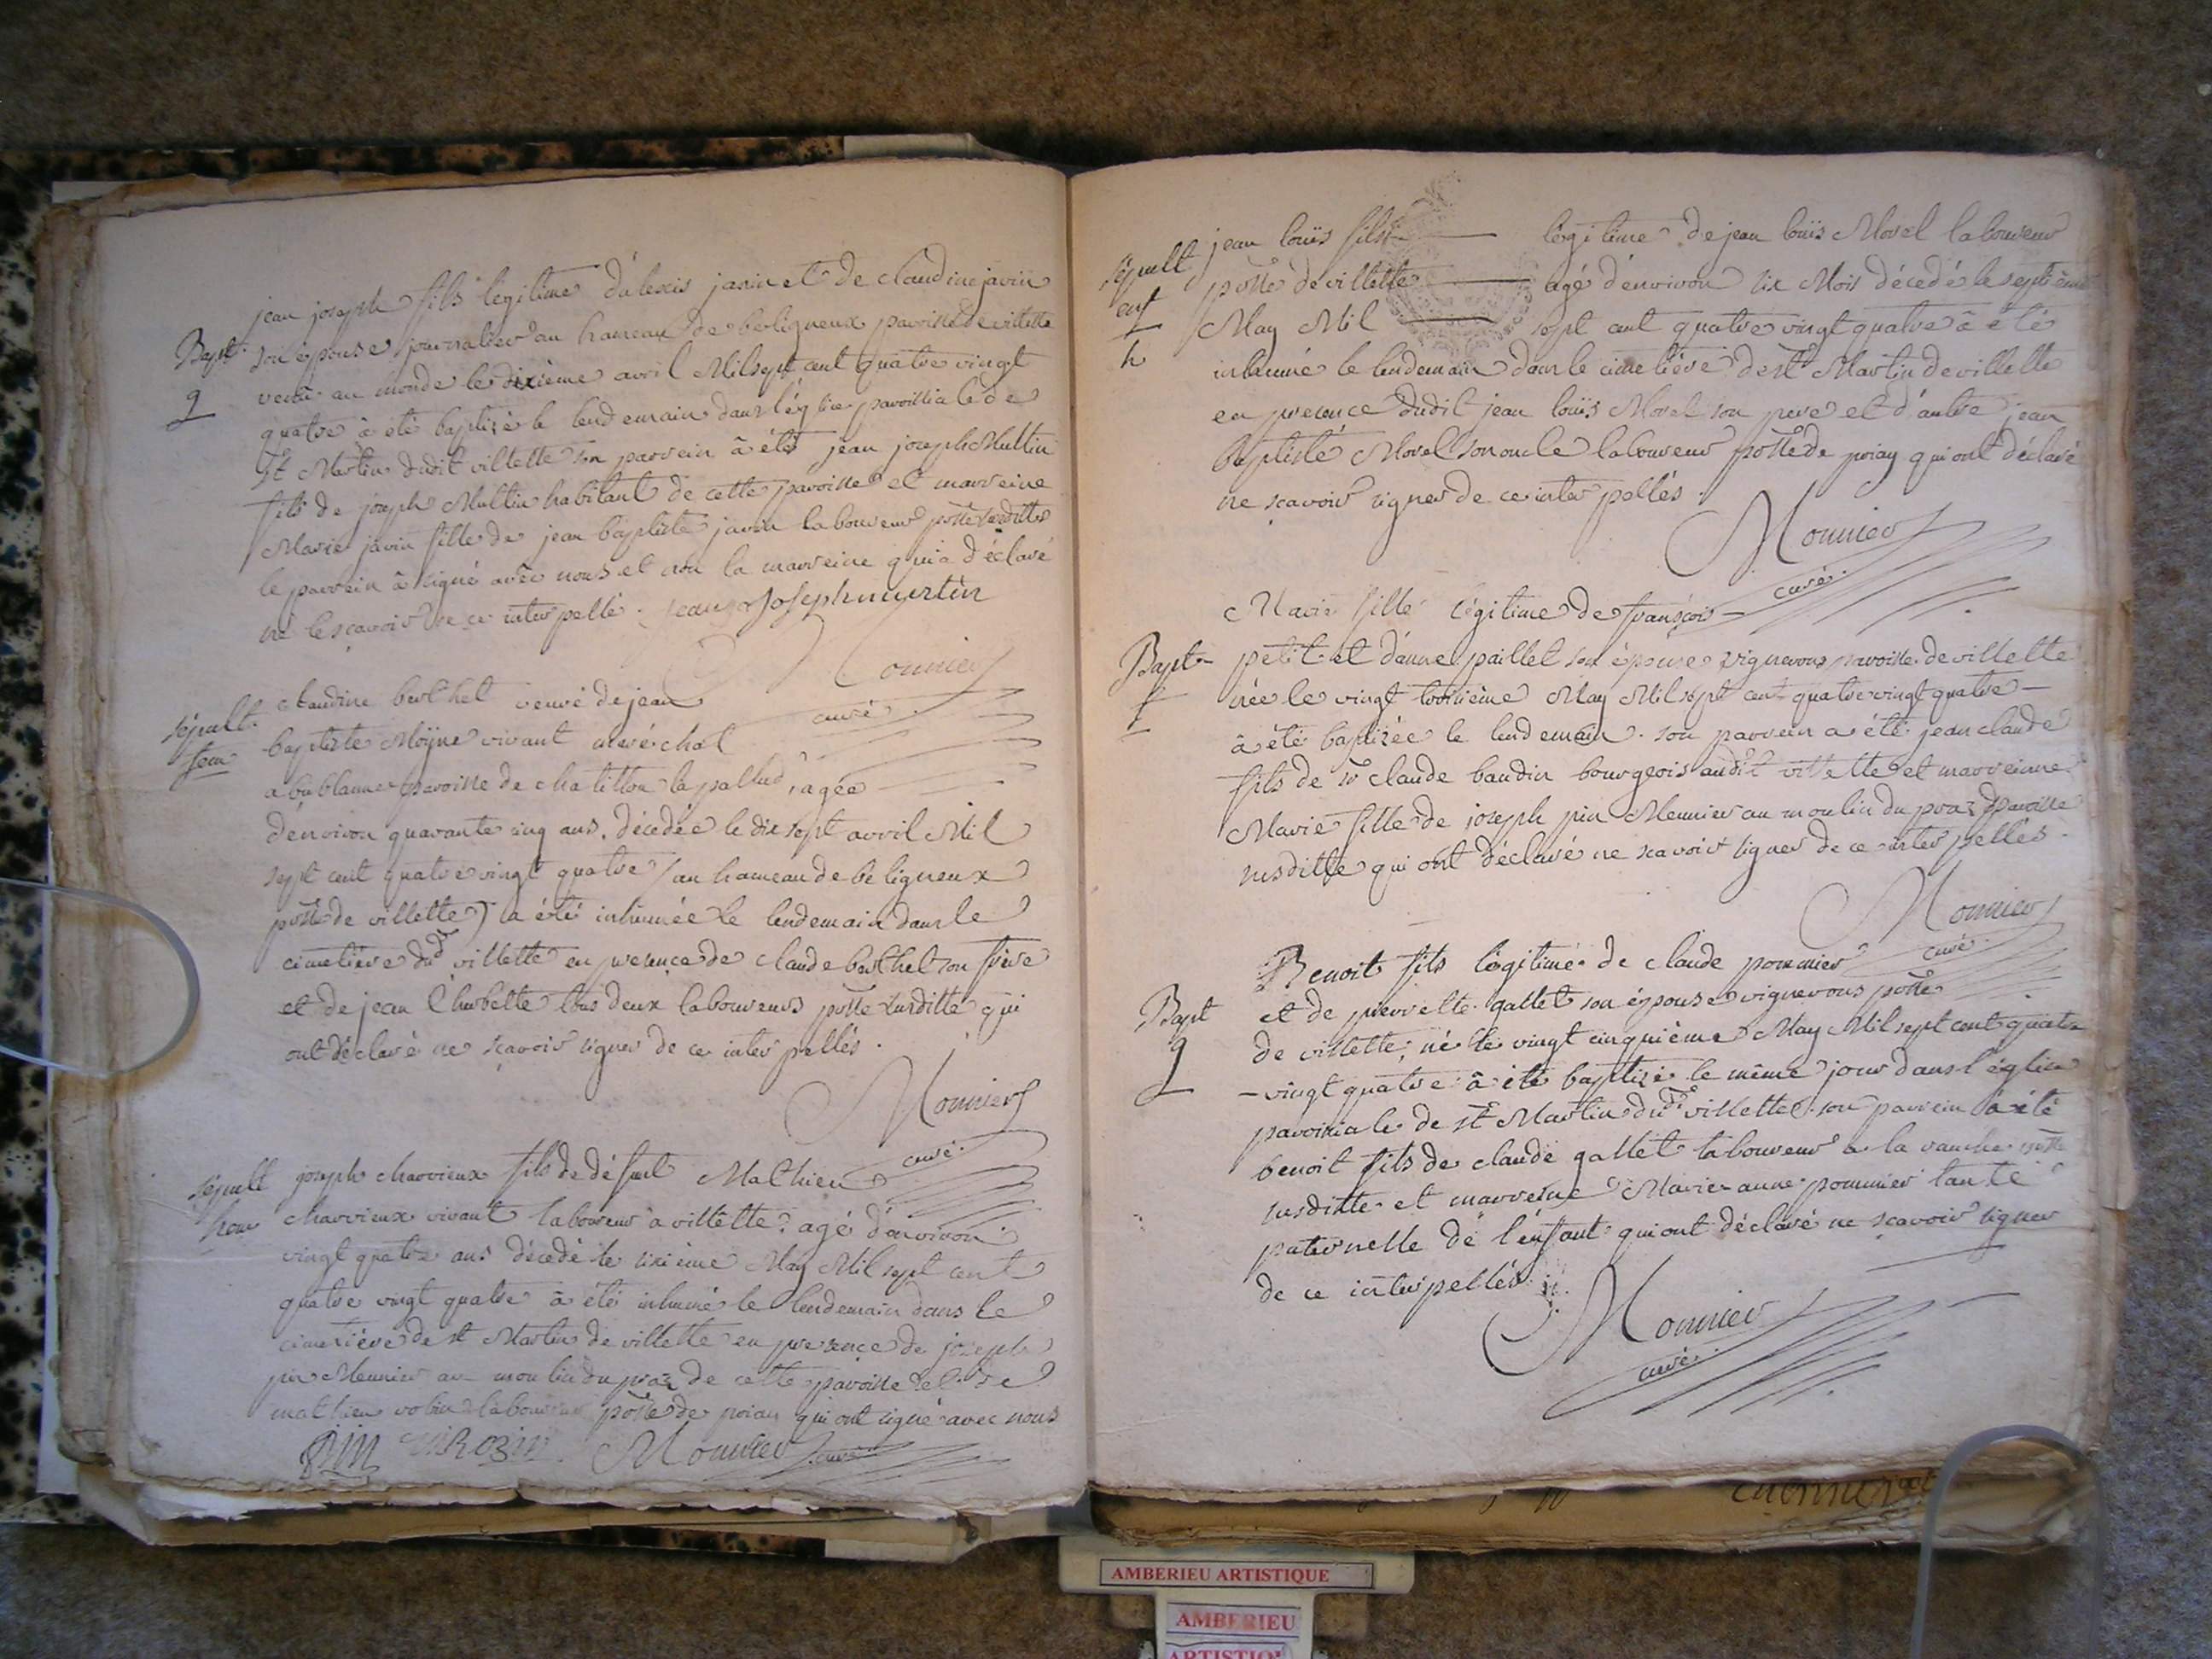 jean joseph fils legitime d'alexis janin et de claudine javin
Bapt. son épouse journalier au hameau de beligneux paroisse de villette
g venu au monde le dixième avril Mil sept cent quatre vingt
quatre à été baptisé le lendemain dans léglise paroissiale de
st Martin dudit villette son parrein à été jean joseph Multin
fils de joseph Multin habitant de cette paroisse et marreine
Marie javin fille de jean baptiste javin laboureur poisse susditte
le parrein à signé avec nous et non la marreine qui a déclaré
ne le sçavoir de ce interpellé. jean joseph murtin
Monnier
curé.
sépult. Claudine berthet veuve de jean
fem baptiste Moÿne vivant maréchal
a bublanne paroisse de chatillon la pallud, agée
d'environ quarante cinq ans, décedée le dix sept avril Mil
sept cent quatre vingt quatre (au hameau de beligneux
poisse de villette) a été inhumée le lendemain dans le
cimetière dud villette en presence de claude berthet son frère
et de jean Chubette tous deux laboureurs poisse susditte qui
ont déclaré ne sçavoir signer de ce interpellés.
Monnier
curé.
sépult joseph charvieux fils de défunt Mathieu
hom charvieux vivant laboureur a villette, agé d'environ
vingt quatre ans décedé le sixième May Mil sept cent
quatre vingt quatre à été inhumé le lendemain dans le
cimetière de st Martin de villette en presence de joseph
pin Meunier au moulin du praz de cette paroisse et de
mathieu robin laboureur poisse de priay qui ont signé avec nous
PIN M ROBIN Monnier curé
jean loüis fils légitime de jean loüis Morel laboureur
sépult poisse de villette agé d'environ six Mois décedé le septième
enf May Mil sept cent quatre vingt quatre à été
h inhumé le lendemain dans le cimetière de st Martin de villette
en presence dudit jean loüis Morel son pere et d'autre jean
baptiste Morel son oncle laboureur poisse de priay qui ont déclaré
ne sçavoir signer de ce interpellés.
Monnier
curé.
Marie fille légitime de françois
Bapt petit et d'anne paillet son épouse vignerons paroisse de villette
f née le vingt troisième May Mil sept cent quatre vingt quatre
à été baptisée le lendemain. son parrein a été jean claude
fils de sr claude baudin bourgeois audit villette et marreinne
Marie fille de joseph pin Meunier au moulin du praz paroisse
susditte qui ont déclaré ne sçavoir signer de ce interpellés.
Monnier
curé.
Benoit fils légitime de claude pommier
Bapt et de pierrette gallet son épouse vignerons poisse
g de villette, né le vingt cinquième May Mil sept cent quatre
vingt quatre à été baptizé le même jour dans l'église
paroissiale de st Martin dud villette. son parrein à été
benoit fils de claude gallet laboureur a la ranche poisse
susditte et marreine Marie anne pommier tante
paternelle de l'enfant qui ont déclaré ne sçavoir signer
de ce interpellés.
Monnier
curé.
AMBERIEU ARTISTIQUE
AMBERIEU
ARTISTIQUE